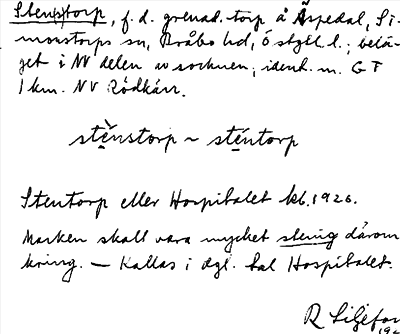 Sten(s)torp, f.d. grenad. torp å Äspedal, Si-
monstorps sn, Bråbo hd, Östgöt. l.; belä-
get i NV delen av socknen, ident. m. G T
1 km. NV Rödkärr.
sténstorp ~ sténtorp
Stentorp eller Hospitalet kb. 1926.
Marken skall vara mycket stenig därom-
kring. — Kallas i dgl. tal Hospitalet.
R Liljefor